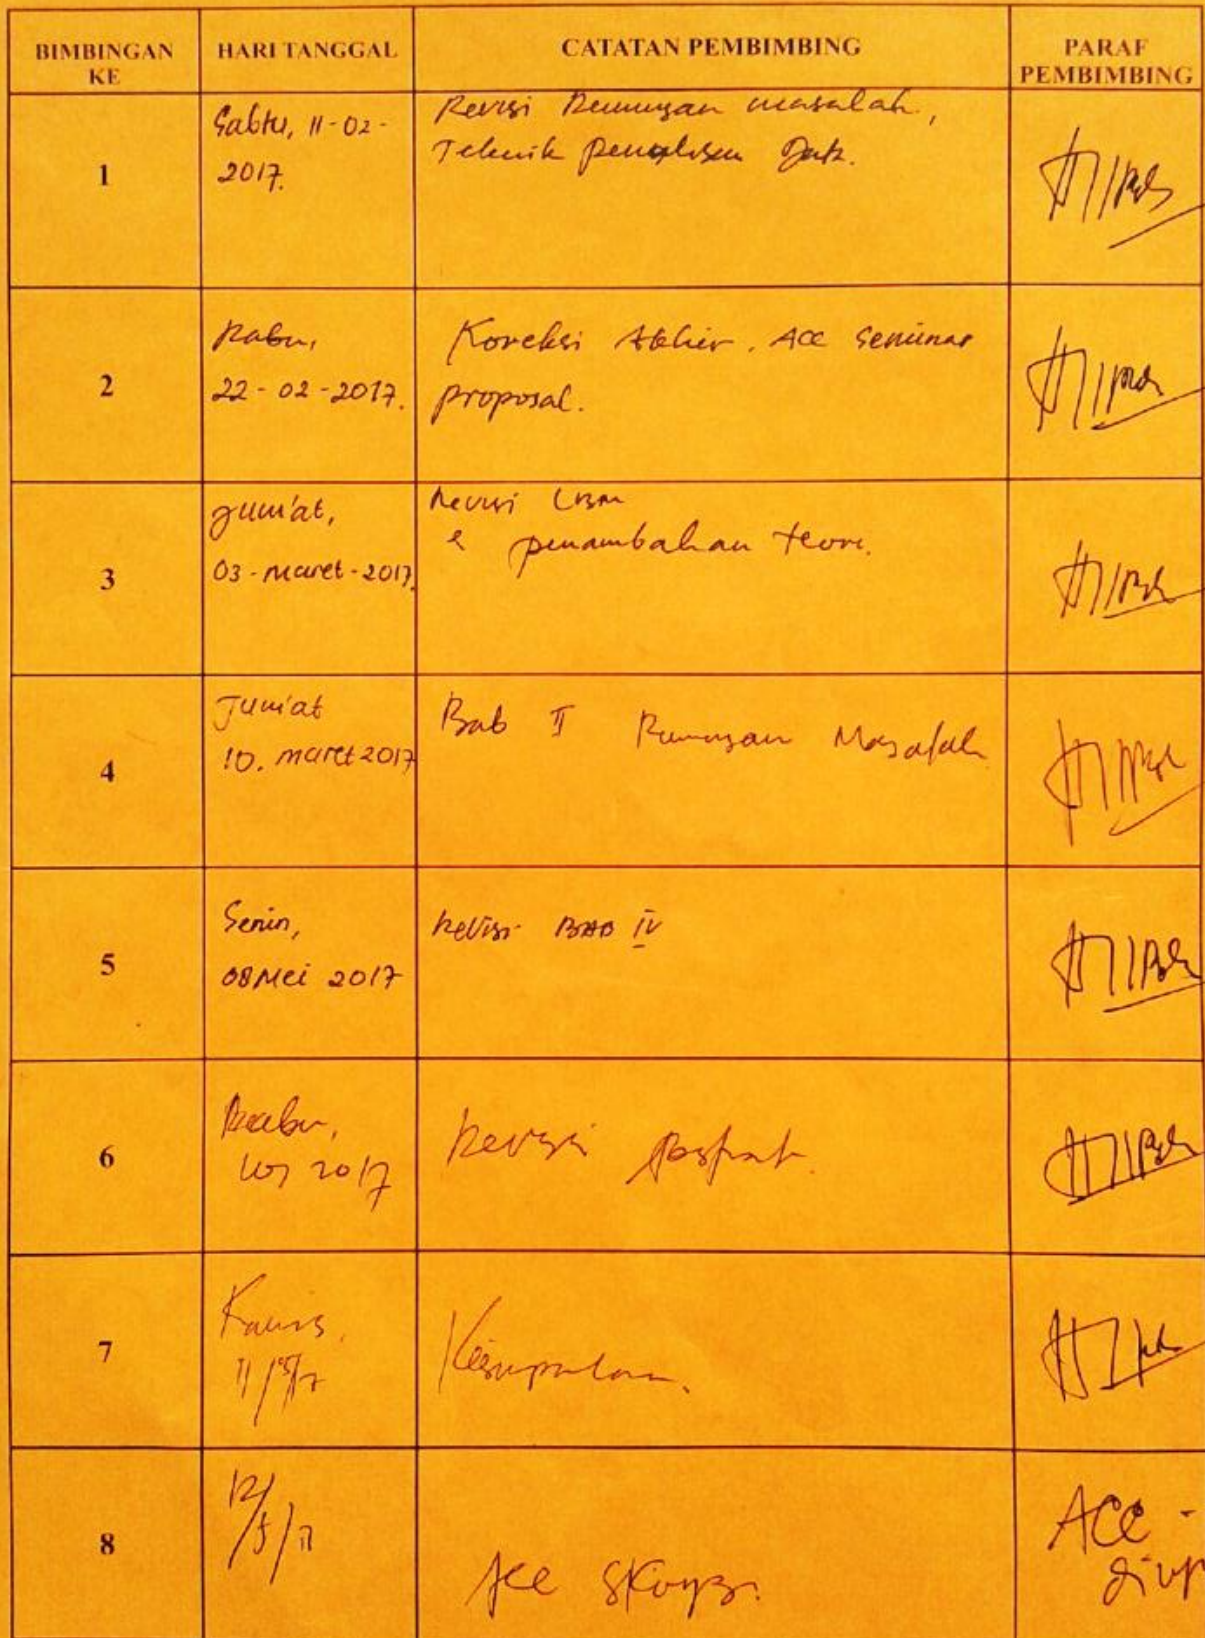 BIMBINGAN KE
HARI TANGGAL
CATATAN PEMBIMBING
PARAF PEMBIMBING
1
Sabtu, 11-02-
2017.
Revisi Rumusan masalah,
Teknik penulisan
2
Rabu,
22-02-2017.
Koreksi Akhir. ACC Seminar
proposal.
3
Jum'at,
03-maret-2017.
Revisi LBM
& penambahan teori.
4
Jum'at
10. maret 2017
Bab II Rumusan Masalah
5
Senin,
08 Mei 2017
Revisi BAB IV
6
Rabu,
2017
Revisi
7
Kamis,
11/05/17
Kesimpulan.
8
12/5/17
Acc Skripsi.
ACC -